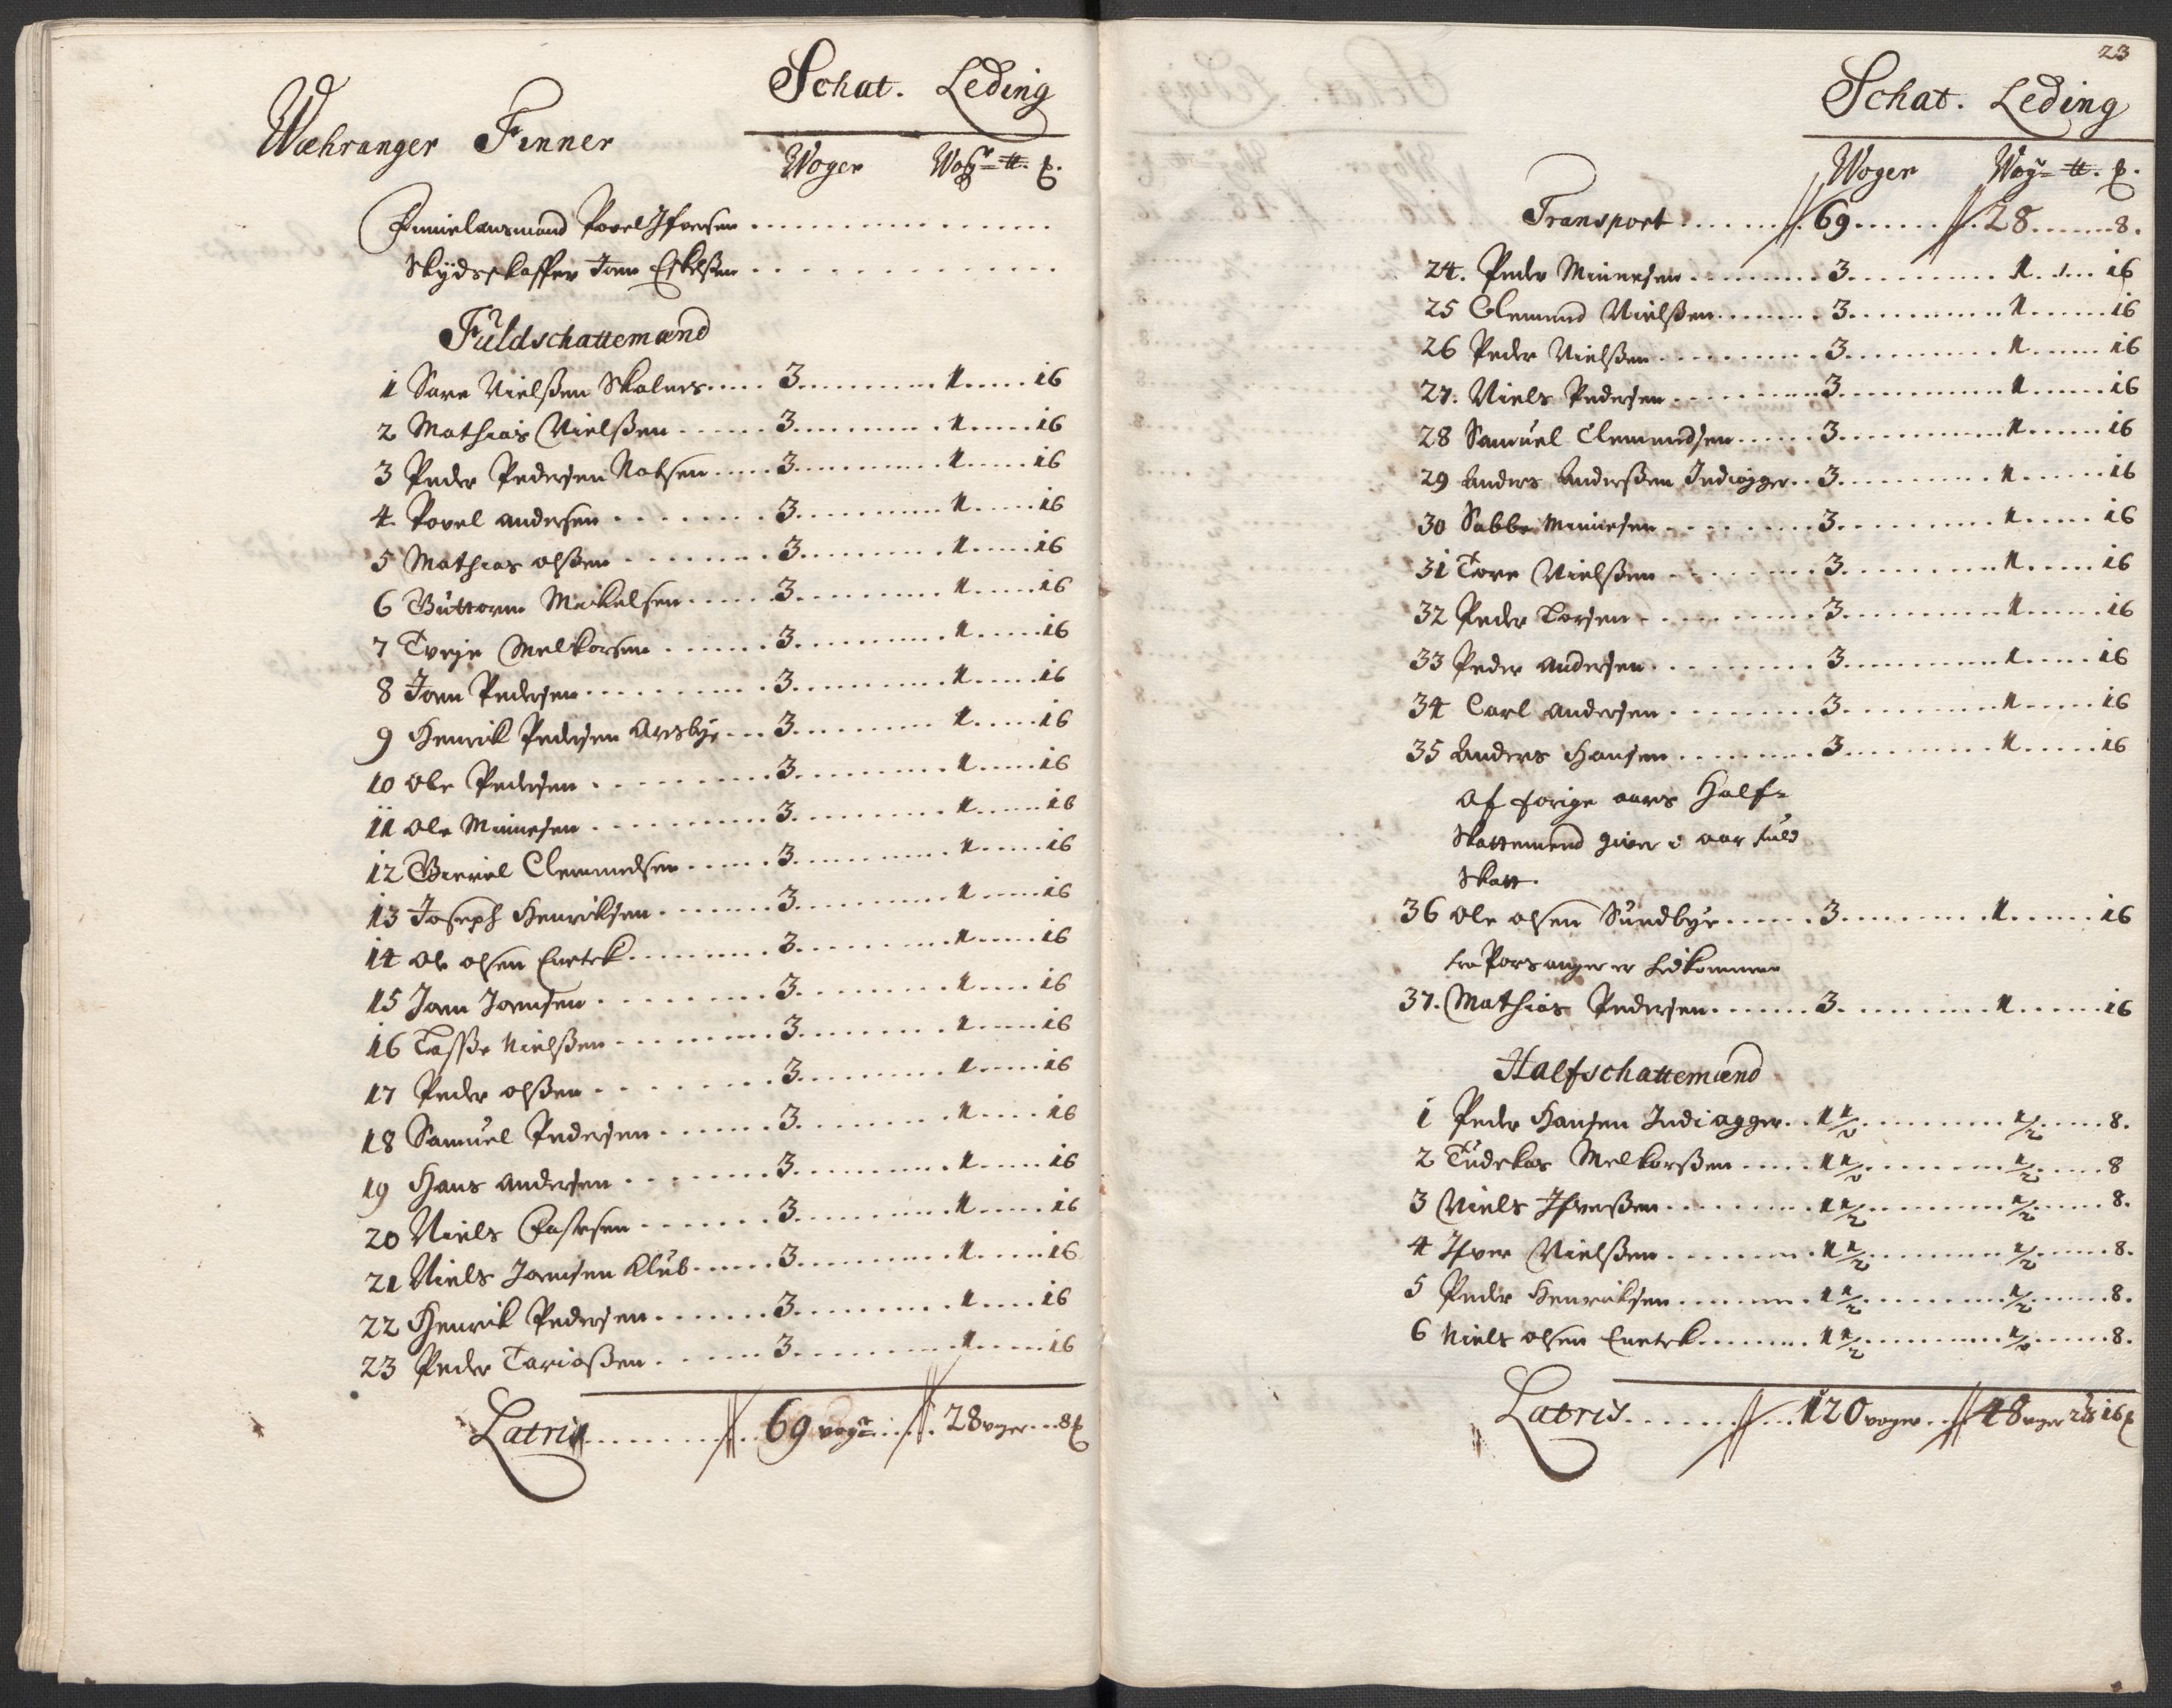 Schat. Leding
Wæhranger Finner
Woger Wogr= tt. p.
Finnelansmand Povel Ifversen
Skydsskaffer Joen Eskelsen
Fuldschattemænd
1 Sare Nielsen Skalners 3 1 16
2 Mathias Nielsen 3 1 16
3 Peder Pedersen Notsen 3 1 16
4. Povel andersen 3 1 16
5 Mathias olsen 3 1 16
6 Guttorm Mickelsen 3 1 16
7 Tveje Melkorsen 3 1 16
8 Joen Pedersen 3 1 16
9 Henrik Pedersen Aresbye 3 1 16
10 ole Pedersen 3 1 16
11 ole Minnesen 3 1 16
12 Gievel Clemmedsen 3 1 16
13 Joseph Henriksen 3 1 16
14 ole olsen Enerck 3 1 16
15 Joen Joensen 3 1 16
16 Tasse Nielsen 3 1 16
17 Peder olsen 3 1 16
18 Samuel Pedersen 3 1 16
19 Hans andersen 3 1 16
20 Niels 3 1 16
21 Niels Joensen Klub 3 1 16
22 Henrik Pedersen 3 1 16
23 Peder Tariosen 3 1 16
Latris 69 vogr 28 voger 8 p
23
Schat. Leding
Woger Wogr= tt. p.
Transport 69 28 8.
24. Peder Minnesen 3 1 16
25 Clemend Nielsen 3 1 16
26 Peder Nielsen 3 1 16
27. Niels Pedersen 3 1 16
28 Samuel Clemendsen 3 1 16
29 Anders Andersen Indiager 3 1 16
30 Sabbe Minnesen 3 1 16
31 Tore Nielsen 3 1 16
32 Peder Torsen 3 1 16
33 Peder andersen 3 1 16
34 Carl andersen 3 1 16
35 Anders Hansen 3 1 16
af forige aars Half=
Skattemend giver i aar fuld
Skatt.
36 ole olsen Sundbye 3 1 16
fra Porsanger er hidkommen
37. Mathias Pedersen 3 1 16
Halfschattemænd
1 Peder Hansen Indiagger 1 1/2 1/2 8.
2 Tudekas Melkorsen 1 1/2 1/2 8
3 Niels Ifversen 1 1/2 1/2 8.
4 Ifver Nielsen 1 1/2 1/2 8.
5 Peder Henriksen 1 1/2 1/2 8.
6 Niels olsen Enerck 1 1/2 1/2 8.
Latris 120 voger 48 voger 16 p